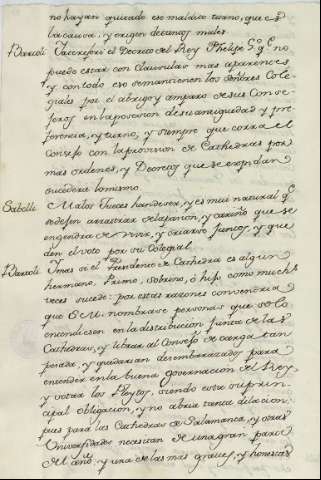 no hayan quitado ese maldito turno, que es
la causa, y origen de tantos males
Bartoli Ya creo fue el Decreto del Rey Phelipe 5º qe no
puede estar con clausulas mas aparences
y con todo eso se mantienen los Señores Cole
giales por el abrigo y amparo de sus Conse
jeros en la posesion de su antiguedad y pre
ferencia, y turno, y siempre que corra el
Consejo con la provision de Cathedras por
mas ordenes, y Decretos que se expidan
sucederá lo mismo.
Malos Jueces han de ver, y es mui natural qe
se dejen arrastrar de la pasion, y cariño que se
engendra de vivir, y criarse juntos, y que
den el voto por su Colegial
Bartoli Y mas si el Pretendiente de Cathedra es algun
hermano, Primo, sobrino, ô hijo como muchas
veces sucede: por estas razones convendria
que S. M. nombrase personas que solo
entendiesen en la distribucion justa de las
Cathedras, y librar al Consejo de carga tan
pesada, y quedarian desembarazados para
entender en la buena governacion del Rey,
y votar los Pleytos, siendo esta su prin-
cipal obligacion, y no abria tanta dilacion
pues para las Cathedras de Salamanca, y otras
Universidades necesitan de una gran parte
del año, y una de las mas graves, y honestas